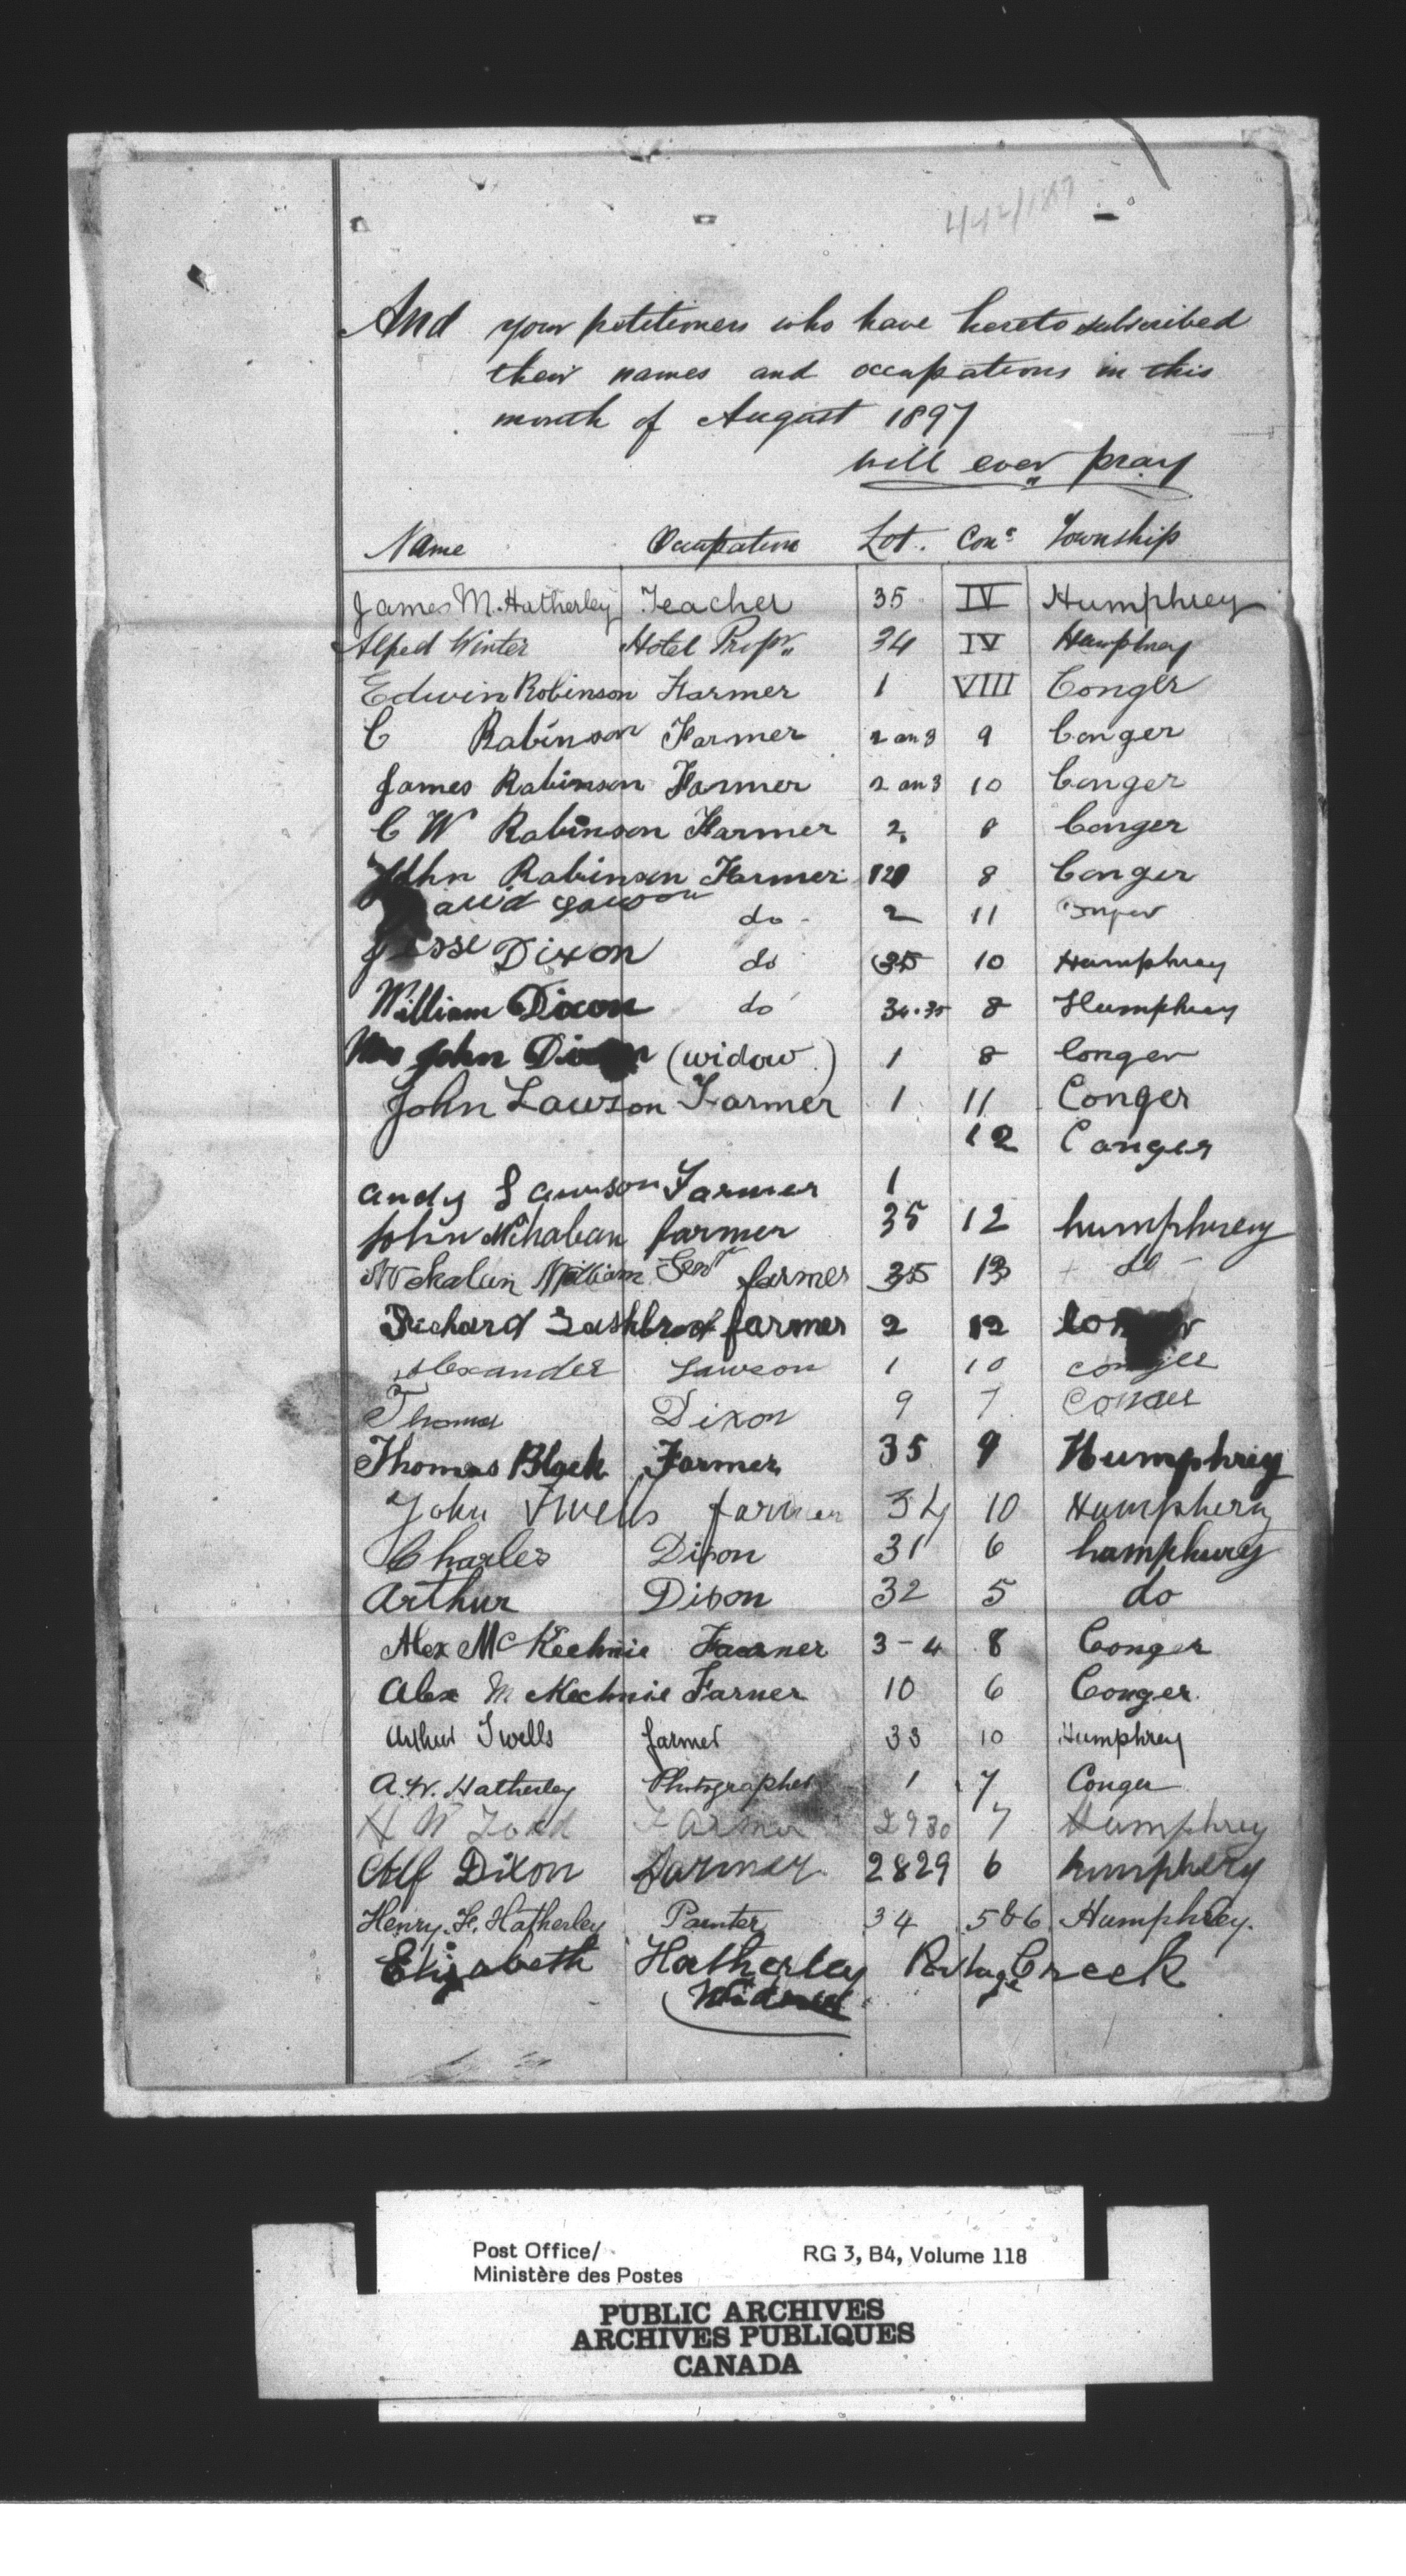 442/1897
And your petitioners who have hereto subscribed
their names and occupations in this
month of August 1897
will ever pray
Name Occupation Lot. Con⁠s Township
James M. Hatherley Teacher 35 IV Humphrey
Alfred Winter Hotel Propr. 34 IV Humphrey
Edwin Robinson Farmer 1 VIII Conger
C Robinson Farmer 2 an 3 9 Conger
James Robinson Farmer 2 an 3 10 Conger
C W Robinson Farmer 2 8 Conger
John Robinson Farmer 8 Conger
David Lawson do 2 11 Conger
Jesse Dixon do 35 10 Humphrey
William Dixon do 34.35 8 Humphrey
Mrs John Dixon (widow.) 1 8 Conger
John Lawson Farmer 1 11 Conger
12 Conger
Andy Lawson Farmer 1
John farmer 35 12 humphrey
William farmer 35 13 do
Richard farmer 2 12 Conger
Alexander Lawson 1 10 conger
Thomas Dixon 9 7 Conger
Thomas Black Farmer 35 9 Humphrey
John Twells farmer 34 10 Humphery
Charles Dixon 31 6 humphurey
Arthur Dixon 32 5 do
Alex McKechnie Farmer 3-4 8 Conger
Alex McKechnie Farmer 10 6 Conger.
Arthur Twells farmer 33 10 Humphrey
A. W. Hatherley Photographer 1 7 Conger
H W Todd Farmer 29 30 7 Humphrey
Alf Dixon farmer 28 29 6 humphery
Henry. F. Hatherley Painter 34 5 & 6 Humphrey.
Elizabeth Hatherley Portage Creek
Widow
Post Office/ RG 3, B4, Volume 118
Ministère des Postes
PUBLIC ARCHIVES
ARCHIVES PUBLIQUES
CANADA